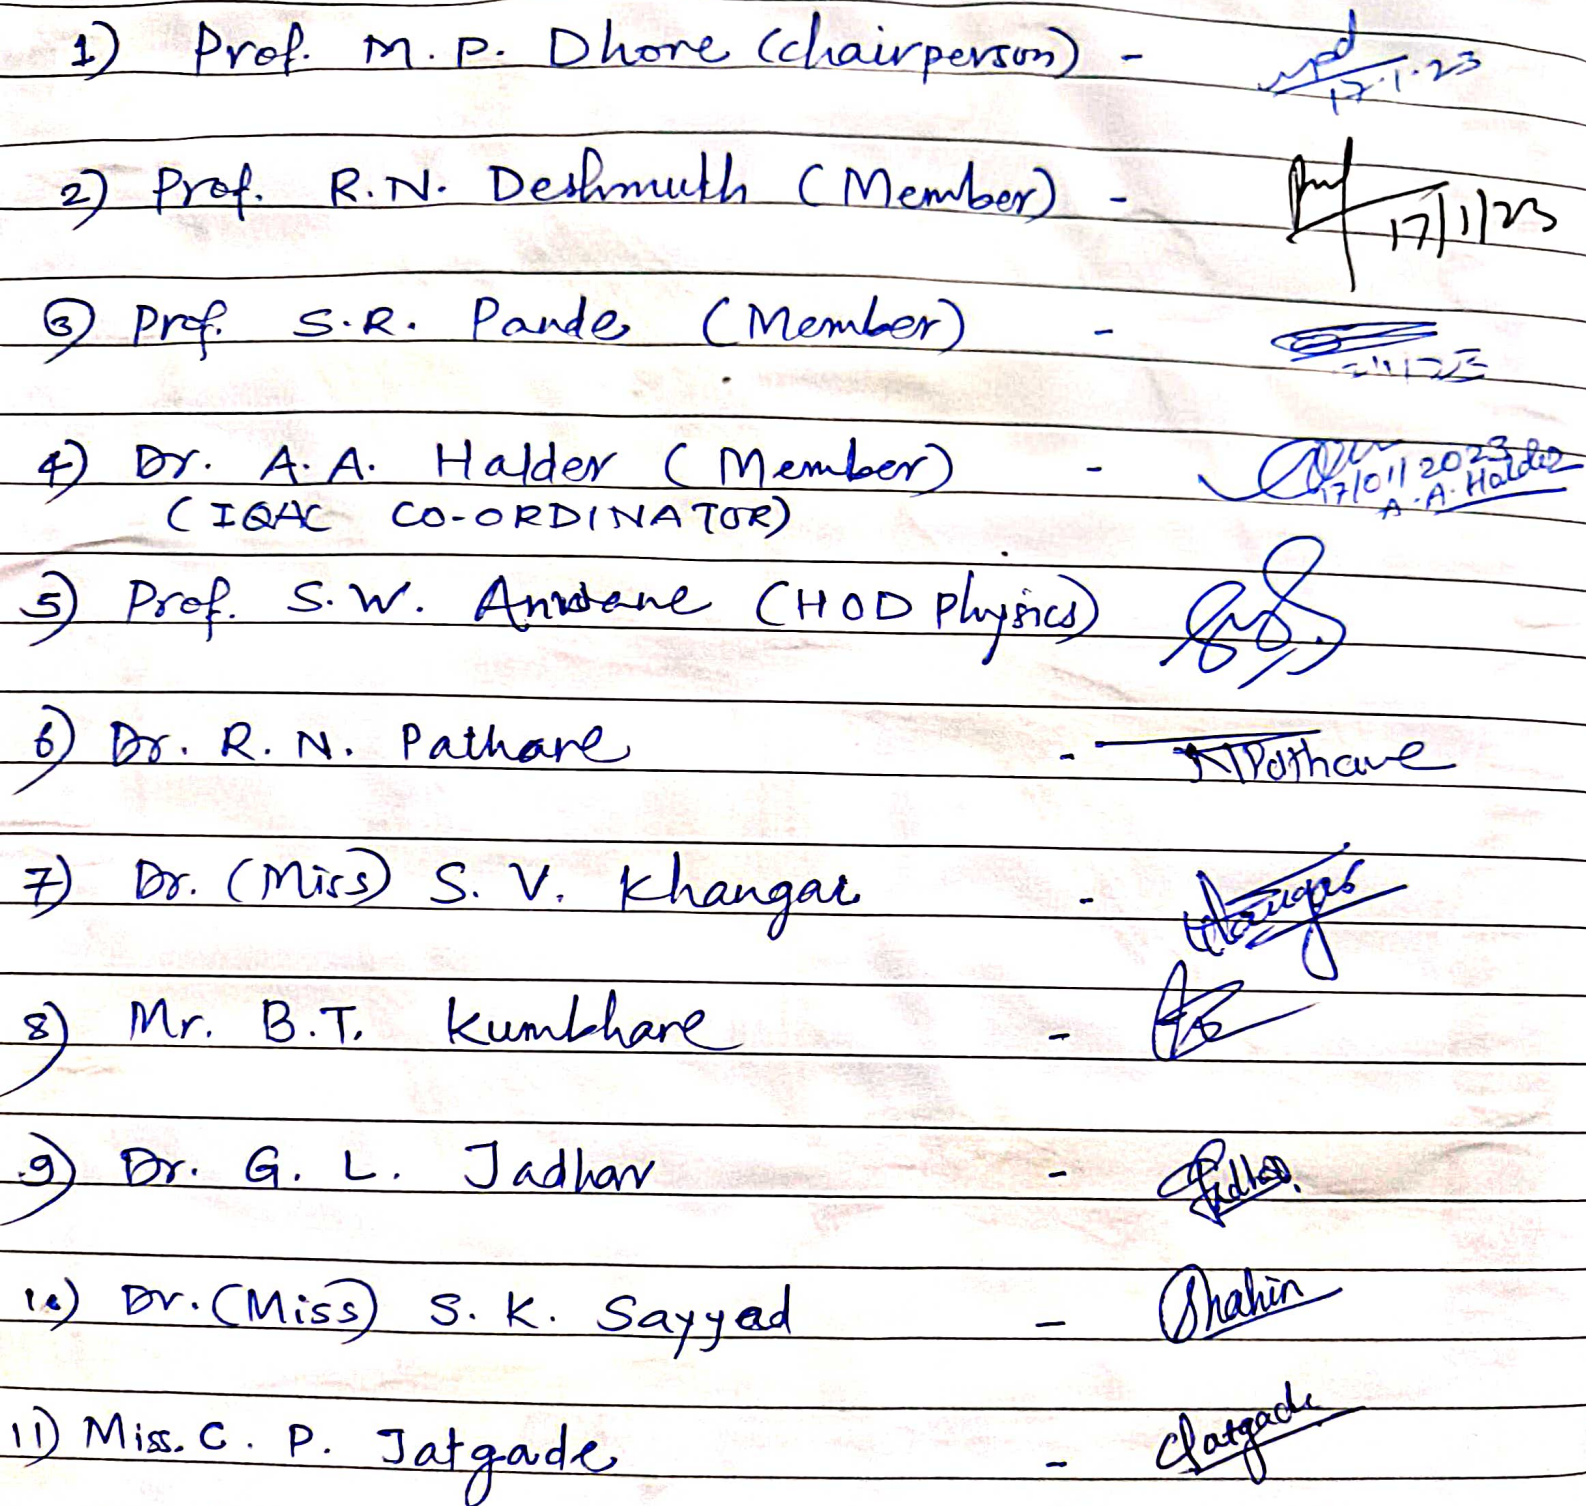 1) Prof. M. P. Dhore (Chairperson) - 17.1.23
2) Prof. R.N. Deshmukh (Member) - 17/1/23
3) Prof. S.R. Pande (Member) -
4) Dr. A. A. Halder (Member) - 17/01/2023
(IQAC CO-ORDINATOR) A. A. Halder
5) Prof. S. W. Anwane (HOD Physics)
6) Dr. R. N. Pathare - RNPathare
7) Dr. (Miss) S. V. Khangar - Khangar
8) Mr. B.T. Kumbhare -
9) Dr. G. L. Jadhav - Jadhav
10) Dr. (Miss) S. K. Sayyad - Shahin
11) Miss. C. P. Jatgade - CJatgade